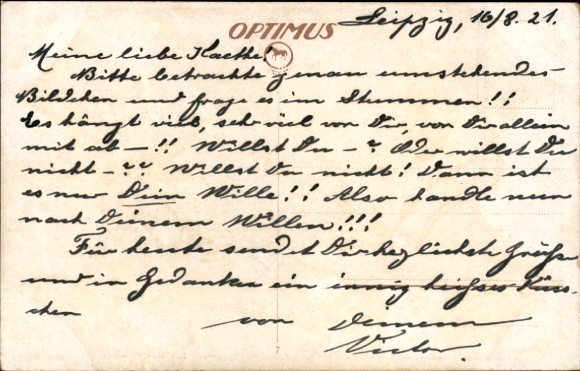 OPTIMUS
Leipzig, 16/8. 21.
Meine liebe Kaethe!
Bitte betrachte genau umstehendes
Bildchen und frage es im Stummen!!
Es hängt viel, sehr viel von Dir, von Dir allein
mit ab –!! Willst Du –? Oder willst Du
nicht –?? Willst Du nicht! Dann ist
es nur Dein Wille!! Also handle nun
nach Deinem Willen!!!
Für heute sendet Dir herzlichste Grüße
und in Gedanken ein innig heißes Küss-
chen von Deinem
Victor.
7